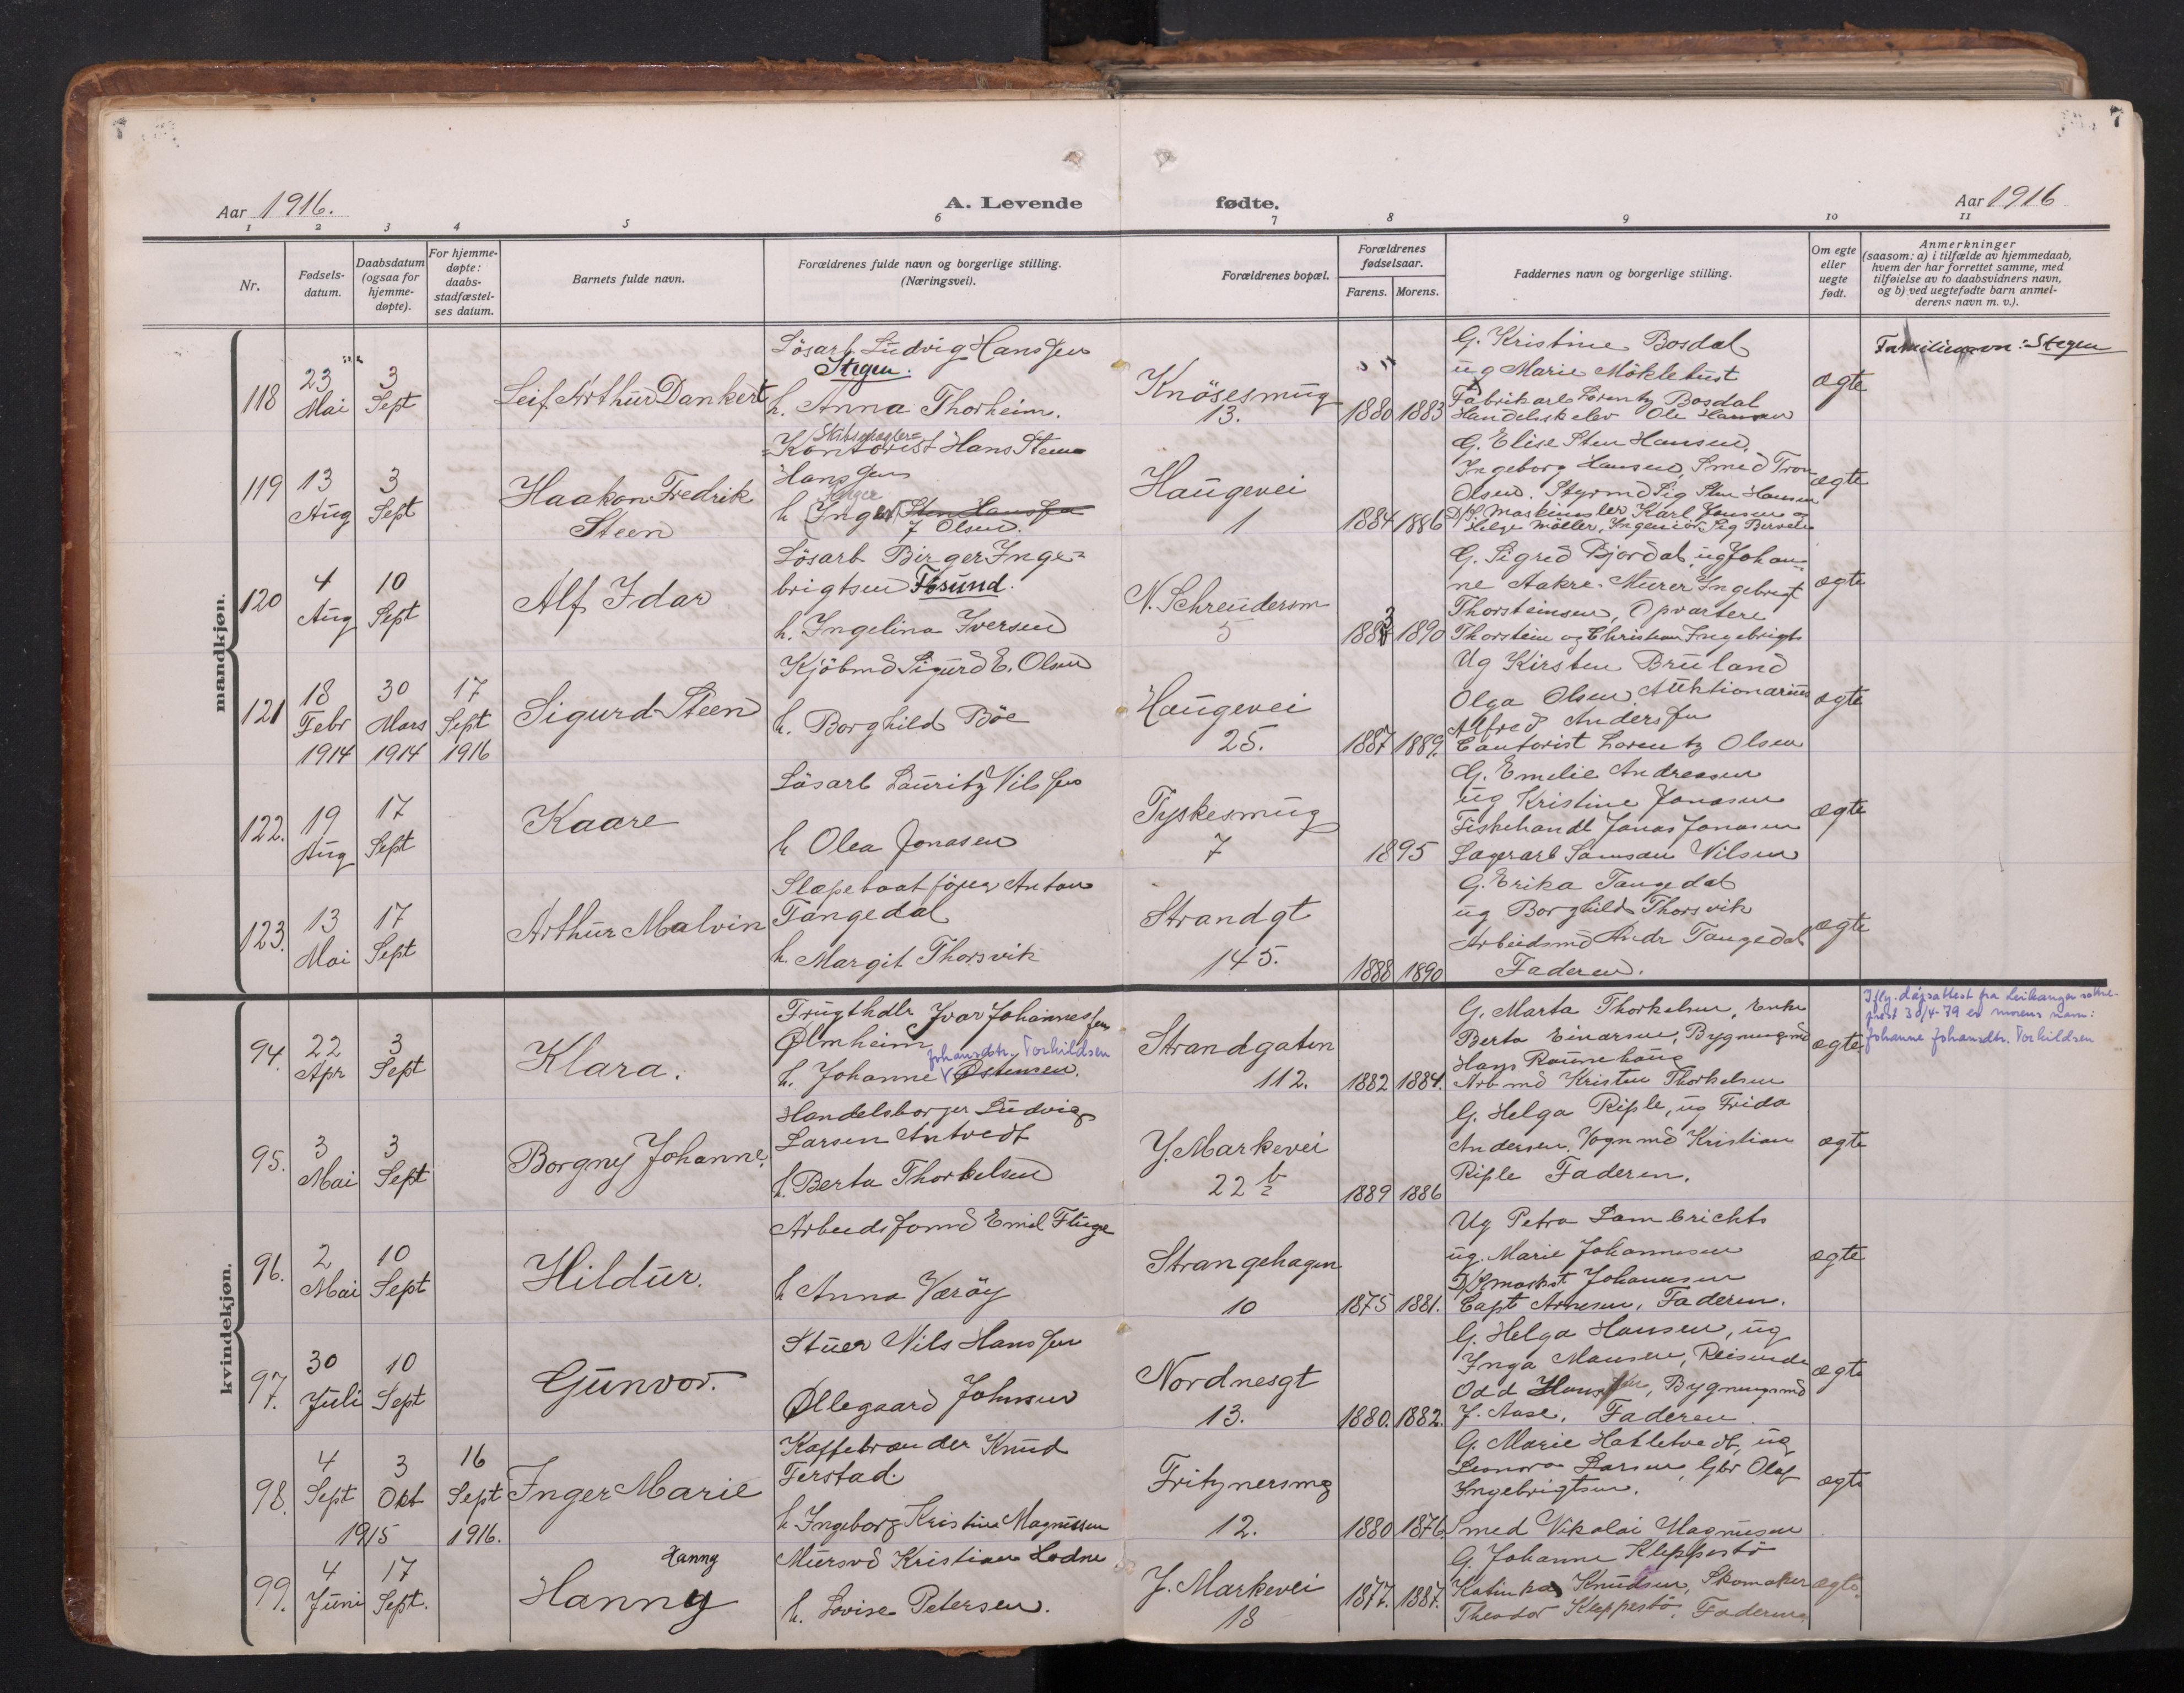 7
7
Aar 1916.
A. Levende
fødte.
Aar 1916
1 2 3 4 5 6 7 8 9 10 11
Nr.
Fødsels-
datum.
Daabsdatum
(ogsaa for
hjemme-
døpte).
For hjemme-
døpte:
daabs-
stadfæstel-
ses datum.
Barnets fulde navn.
Forældrenes fulde navn og borgerlige stilling.
(Næringsvei).
Forældrenes bopæl.
Forældrenes
fødselsaar.
Farens. Morens.
Faddernes navn og borgerlige stilling.
Om egte
eller
uegte
født.
Anmerkninger
(saasom: a) i tilfælde av hjemmedaab,
hvem der har forrettet samme, med
tilføielse av to daabsvidners navn,
og b) ved uegtefødte barn anmel-
derens navn m. v.).
mandkjøn.
118
23
Mai
3
Sept
Leif Arthur Dankert
Lösarb. Ludvig Hanssen
Stegen.
h. Anna Thorheim.
Knösesmug
13.
1880 1883
G. Kristine Bosdal
ug Marie Möklebust
Fabrikarb Lorentz Bosdal
Handelselev Ole Hansen
ægte
Familienavn: Stegen
119
13
Aug
3
Sept
Haakon Fredrik
Steen
Skibsmægler=
Kontorist Hans Steen
Hanssen
Inger
h Inger Sten Hanssen
f Olsen.
Haugevei
1
1884 1886
G. Elise Sten Hansen.
Ingeborg Hansen, Smed Tron
Olsen. Styrmd Sig Sten Hansen
D/S Maskinmster Karl Jensen og
Helge Möller, Ingeniör Sig
ægte
120
4
Aug
10
Sept
Alf Idar
Lösarb Birger Inge=
brigtsen Fosund.
h. Ingelina Iversen
N. Schreudersm
5
1883 1890
G. Sigrid Bjordal, ug Johan-
ne Aakre. Murer Ingebrigt
Thorsteinsen, Opvartere
Thorstein og Christian Ingebrigts
ægte
121
18
Febr
1914
30
Mars
1914
17
Sept
1916
Sigurd Steen
Kjöbmd Sigurd E. Olsen
h. Borghild Böe
Haugevei
25.
1887 1889.
Ug Kirsten Bruland
Olga Olsen. Auktionarius
Alfred Anderssen
Contorist Lorentz Olsen
ægte
122.
19
Aug
17
Sept
Kaare
Lösarb Lauritz Nilssen
h Olea Jonasen
Tyskesmug
7
1895
G. Emelie Andreasen
ug Kristine Jonasen
Fiskehandl Jonas Jonasen
Lagerarb Samson Nilsen
ægte
123.
13
Mai
17
Sept
Arthur Malvin
Slæpebaatförer Anton
Tangedal
h. Margit Thorsvik
Strandgt
145.
1888 1890
G. Erika Tangedal
ug Borghild Thorsvik
Arbeidsmd Andr Tangedal
Faderen.
ægte
kvindekjøn.
94.
22
Apr
3
Sept
Klara.
Frugthdlr Ivar Johannessen
Ølmheim
Johansdtr. Torkildsen
h. Johanne Østensen.
Strandgaten
112.
1882 1884.
G. Marta Thorkelsen, Enke
Berta Einarsen, Bygningsmd
Hans Rounehaug
Arbmd Kristen Thorkelsen
ægte
Iflg. dåpsattest fra Leikanger sokne-
prest 30/4-79 er morens navn:
Johanne Johansdtr. Torkildsen
95.
3
Mai
3
Sept
Borgny Johanne.
Handelsborger Ludvig
Larsen Antvedt
h. Berta Thorkelsen
Y. Markevei
22 b
1889 1886
G. Helga Riple, ug Frida
Andersen, Vognmd Kristian
Riple Faderen.
ægte
96.
2
Mai
10
Sept
Hildur.
Arbeidsformd Emil Fluge
h Anna Værøy
Strangehagen
10
1875 1881.
Ug Petra Lambrichts
ug. Marie Johannesen
D/Smaskst Johannesen
Capt Arnesen, Faderen.
ægte
97.
30
Juli
10
Sept
Gunvor.
Stuer Nils Hanssen
Øllegaard Johnsen
Nordnesgt
13.
1880. 1882.
G. Helga Hansen, ug
Inga Monsen, Reisende
Odd Hanssen, Bygningsmd
J. Aase, Faderen.
ægte
98.
4
Sept
3
Okt
1915
16
Sept
1916.
Inger Marie
Kaffebrænder Knud
Ferstad.
h. Ingeborg Kristine Magnussen
Fritznersmg
12.
1880 1876
G. Marie Hatletvedt, ug
Leonora Larsen, Gbr Olaf
Ingebrigtsen.
Smed Nikolai Magnusen
ægte
99.
4
Juni
17
Sept.
Hanny
Hanny
Mursvd Kristian Hodne
h. Lovise Petersen.
Y. Markevei
18
1877. 1887.
G. Johanne Kleppestö
Katinka Knudsen, Skomaker
Theodor Kleppestö, Faderen
ægte